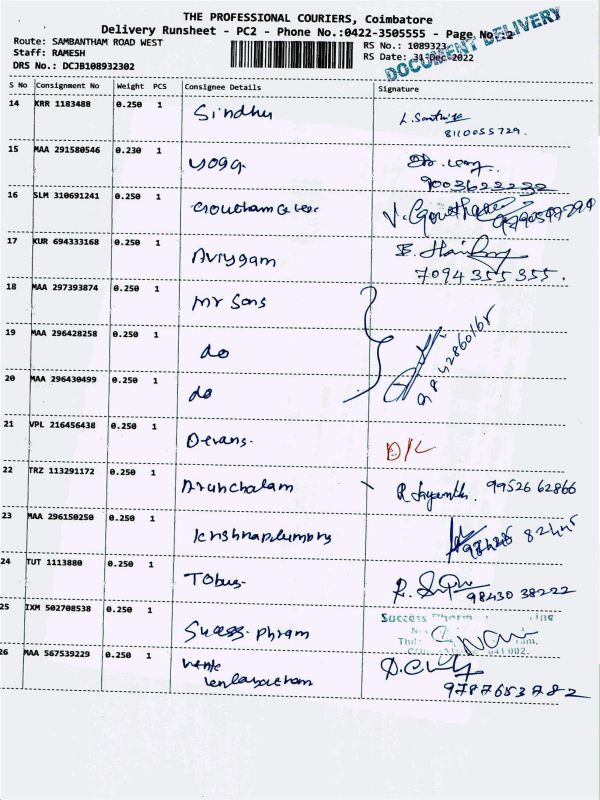 THE PROFESSIONAL COURIERS, Coimbatore
Delivery Runsheet - PC2 - Phone No.:0422-3505555 - Page No.:2
Route: SAMBANTHAM ROAD WEST
RS No.: 1089323
Staff: RAMESH
RS Date: 31-Dec-2022
DRS No.: DCJB108932302
DOCUMENT DELIVERY
S No Consignment No Weight PCS Consignee Details Signature
14 KRR 1183488 0.250 1 Sindhu
8110055729.
15 MAA 291580546 0.230 1 yoga
9003623232
16 SLM 310691241 0.250 1
17 KUR 694333168 0.250 1
7094355355.
18 MAA 297393874 0.250 1 Mr Sons
19 MAA 296428258 0.250 1 do
9842860165
20 MAA 296430499 0.250 1 do
21 VPL 216456438 0.250 1 Devans. D/L
22 TRZ 113291172 0.250 1 Arunchalam R. Jayanthi. 9952662866
23 MAA 296150250 0.250 1
24 TUT 1113880 0.250 1 Tobus- 98430 38222
25 IXM 502708538 0.250 1 Sucess. phram Success Pharm
641 002.
26 MAA 567539229 0.250 1
9787653782